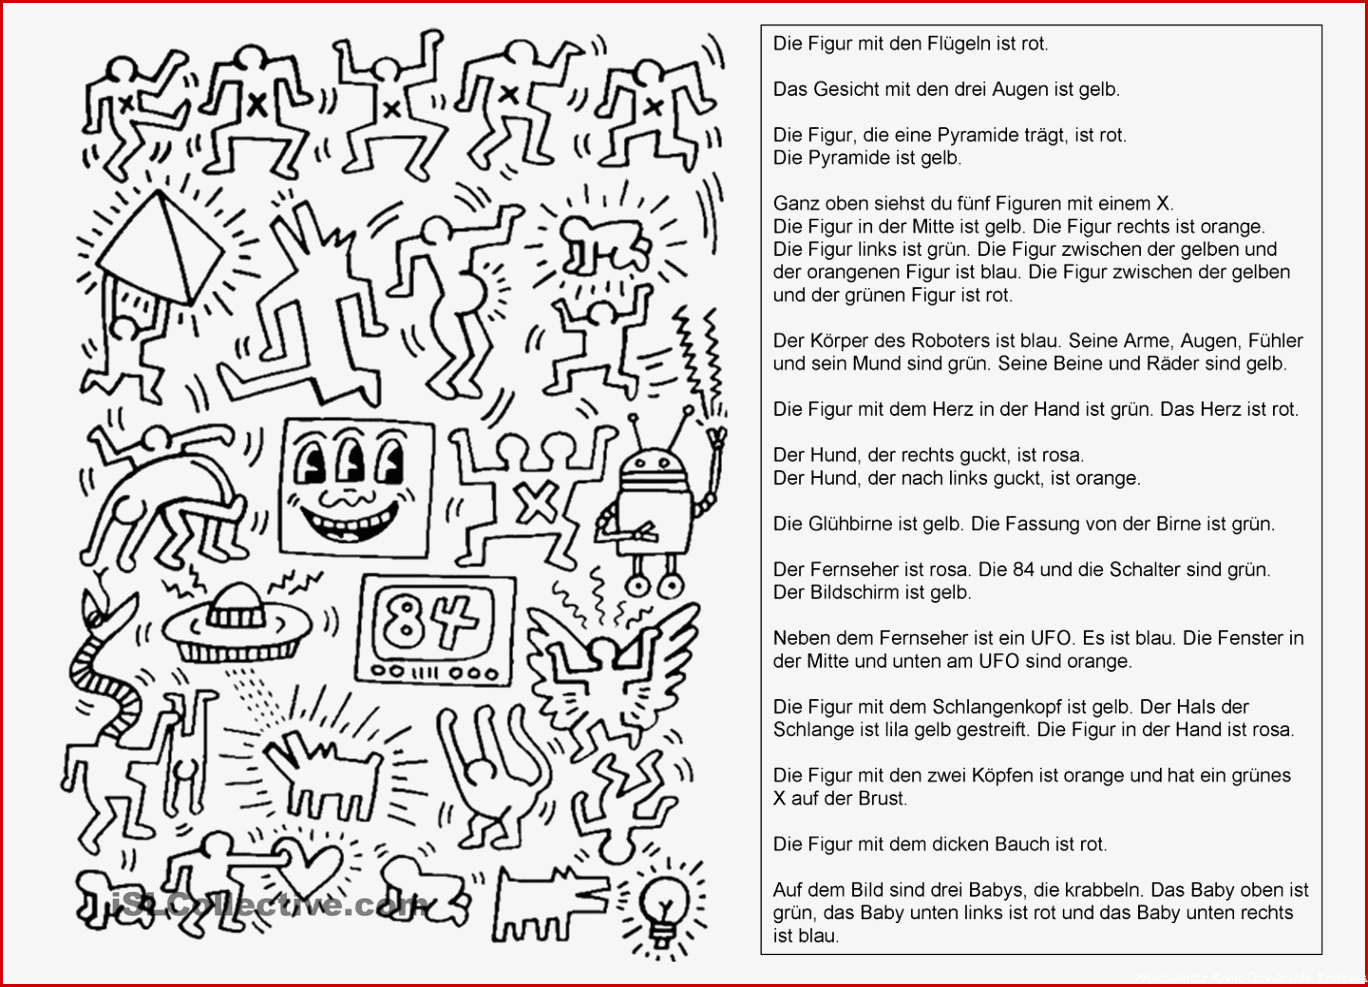 Die Figur mit den Flügeln ist rot.
Das Gesicht mit den drei Augen ist gelb.
Die Figur, die eine Pyramide trägt, ist rot.
Die Pyramide ist gelb.
Ganz oben siehst du fünf Figuren mit einem X.
Die Figur in der Mitte ist gelb. Die Figur rechts ist orange.
Die Figur links ist grün. Die Figur zwischen der gelben und
der orangenen Figur ist blau. Die Figur zwischen der gelben
und der grünen Figur ist rot.
Der Körper des Roboters ist blau. Seine Arme, Augen, Fühler
und sein Mund sind grün. Seine Beine und Räder sind gelb.
Die Figur mit dem Herz in der Hand ist grün. Das Herz ist rot.
Der Hund, der rechts guckt, ist rosa.
Der Hund, der nach links guckt, ist orange.
Die Glühbirne ist gelb. Die Fassung von der Birne ist grün.
Der Fernseher ist rosa. Die 84 und die Schalter sind grün.
Der Bildschirm ist gelb.
Neben dem Fernseher ist ein UFO. Es ist blau. Die Fenster in
der Mitte und unten am UFO sind orange.
Die Figur mit dem Schlangenkopf ist gelb. Der Hals der
Schlange ist lila gelb gestreift. Die Figur in der Hand ist rosa.
Die Figur mit den zwei Köpfen ist orange und hat ein grünes
X auf der Brust.
Die Figur mit dem dicken Bauch ist rot.
Auf dem Bild sind drei Babys, die krabbeln. Das Baby oben ist
grün, das Baby unten links ist rot und das Baby unten rechts
ist blau.
84
iSLCollective.com